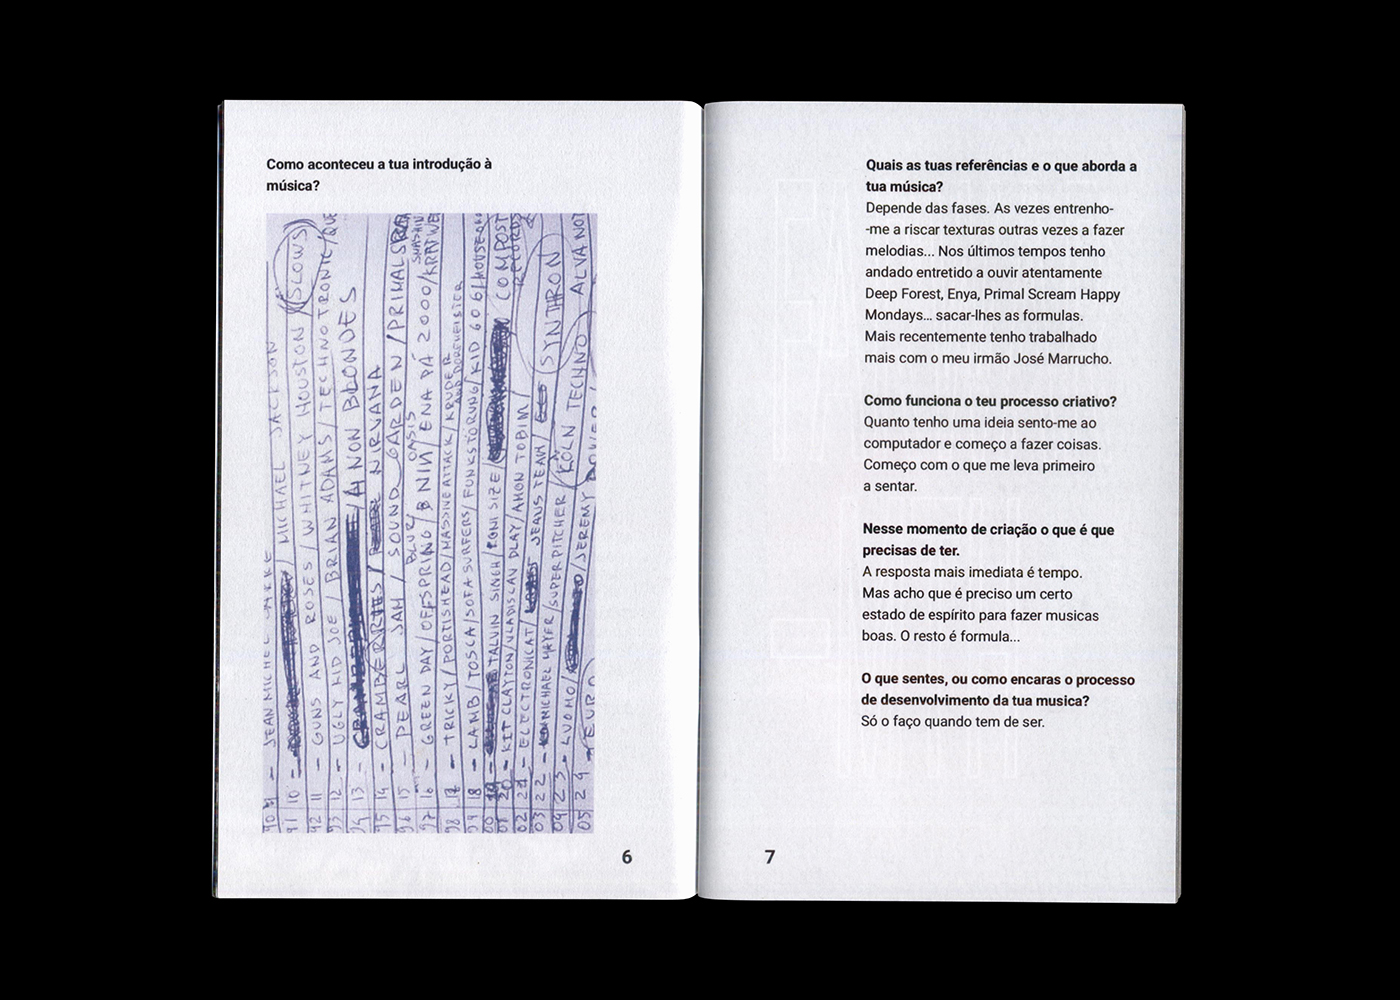 Como aconteceu a tua introdução à
música?
90 9 - JEAN MICHEL JARRE
91 10 - / MICHAEL JACKSON
92 11 - GUNS AND ROSES / WHITNEY HOUSTON (SLOWS)
93 12 - UGLY KID JOE / BRIAN ADAMS / TECHNOTRONIC /
94 13 - / 4 NON BLONDES
95 14 - CRAMBERRIES / NIRVANA
96 15 - PEARL JAM / SOUND GARDEN / PRIMAL
BLUR OASIS SMASHIN
97 16 - GREEN DAY / OFFSPRING / NIN / ENA PÁ 2000 / KRAFWE
98 17 - TRICKY / PORTISHEAD / MASSIVE ATTACK / KRUDER
AND DORFMEISTER
99 18 - LAMB / TOSCA / SOFA SURFERS / FUNKSTÖRUNG / KID 606 / HOUSE
00 19 - TALVIN SINGH / RONI SIZE / COMPOST
RECORDS
01 20 - KIT CLAYTON / VLADISLAV DLAY / AMON TOBIM /
02 21 - ELECTRONICAT / JEAUS TEAM / SYNTHRON
03 22 - MICHAEL MAYER / SUPERPITCHER / KÖLN TECHNO ALVA NOT
04 23 - LUOMO / / JEREMY
05 24 - EURO
6
Quais as tuas referências e o que aborda a
tua música?
Depende das fases. As vezes entrenho-
-me a riscar texturas outras vezes a fazer
melodias... Nos últimos tempos tenho
andado entretido a ouvir atentamente
Deep Forest, Enya, Primal Scream Happy
Mondays... sacar-lhes as formulas.
Mais recentemente tenho trabalhado
mais com o meu irmão José Marrucho.
Como funciona o teu processo criativo?
Quanto tenho uma ideia sento-me ao
computador e começo a fazer coisas.
Começo com o que me leva primeiro
a sentar.
Nesse momento de criação o que é que
precisas de ter.
A resposta mais imediata é tempo.
Mas acho que é preciso um certo
estado de espírito para fazer musicas
boas. O resto é formula...
O que sentes, ou como encaras o processo
de desenvolvimento da tua musica?
Só o faço quando tem de ser.
7